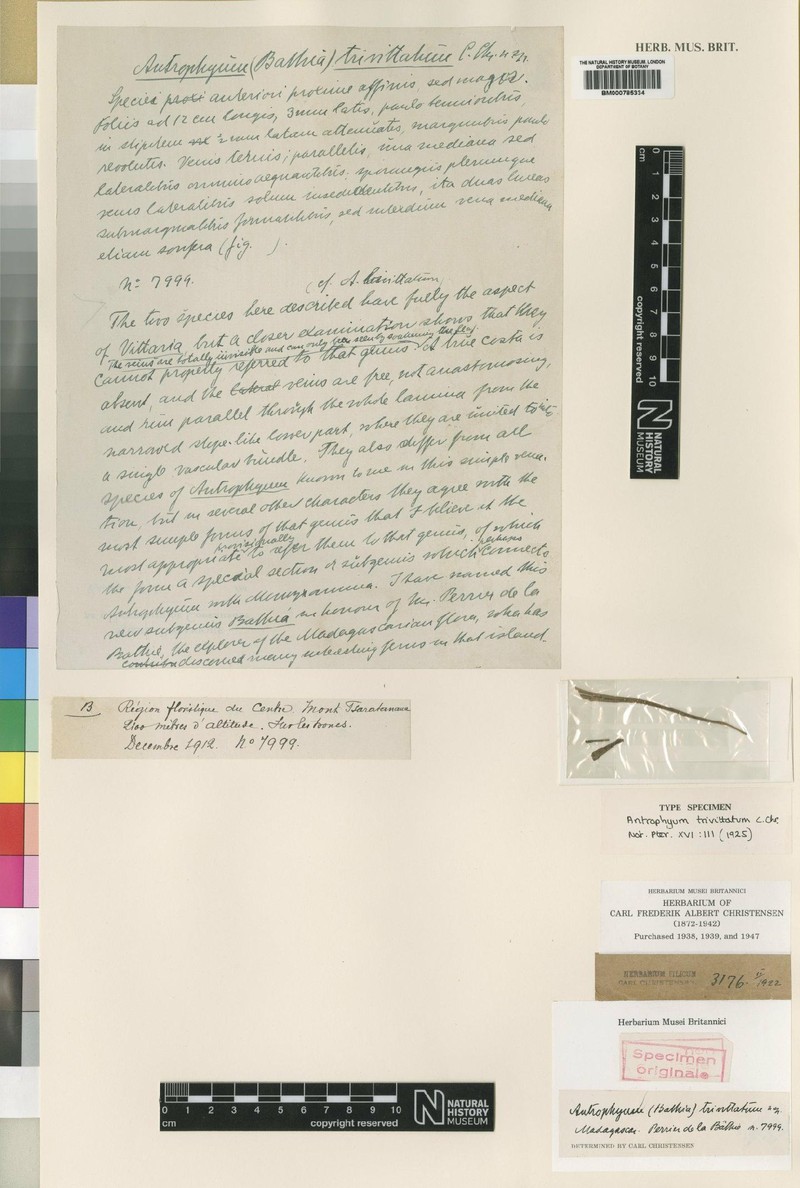 HERB. MUS. BRIT.
THE NATURAL HISTORY MUSEUM, LONDON
DEPARTMENT OF BOTANY
Antrophyum (Bathia) trivittatum C. Chr. n. sp.
Species proxi anteriori proxime affinis, sed major.
Foliis ad 12 cm longis, 3mm latis, paulo tenuioribus,
in stipitem 2 mm latum attenuatis, marginibus paulo
revolutis. Venis ternis, parallelis, una mediana sed
lateralibus omnino aequantibus. sporangiis plerumque
venis lateralibus solum insedentibus, ita duas lineas
submarginalibus formantibus, sed interdum vena mediana
etiam sorifera (fig. ).
No 7999.
(cf. A. bivittatum)
The two species here described have fully the aspect
of Vittaria but a closer examination shows that they
The veins are totally invisible and can only be seen by
cannot properly referred to that genus. A true costa is
absent, and the lateral veins are free, not anastomosing,
and run parallel through the whole lamina from the
narrowed stipe-like lower part, where they are united into
a single vascular bundle. They also differ from all
species of Antrophyum known to me in this simple vena-
tion, but in several other characters they agree with the
most simple forms of that genus that I believe it the
provisionally
most appropriate to refer them to that genus, of which
perhaps
the form a special section or subgenus which connects
Antrophyum with Monogramma. I have named this
new subgenus Bathia in honour of Mr. Perrier de la
Bathie, the explorer of the Madagascarian flora, who has
discovered many interesting ferns in that island.
cm 0 1 2 3 4 5 6 7 8 9 10
copyright reserved
NATURAL
HISTORY
MUSEUM
B Région floristique du Centre Mont Tsaratanana
mètres d'altitude. Sur les troncs.
Decembre 1912. No 7999.
TYPE SPECIMEN
Antrophyum trivittatum C.Chr.
Not. Pter. XVI : 111 (1925)
HERBARIUM MUSEI BRITANNICI
HERBARIUM OF
CARL FREDERIK ALBERT CHRISTENSEN
(1872-1942)
Purchased 1938, 1939, and 1947
HERBARIUM FILICUM
CARL CHRISTENSEN 3176. 1922
Herbarium Musei Britannici
Specimen
originale
Antrophyum (Bathia) trivittatum n. sp.
Madagascar. Perrier de la Bâthie n. 7999.
DETERMINED BY CARL CHRISTENSEN
0 1 2 3 4 5 6 7 8 9 10
cm copyright reserved
NATURAL
HISTORY
MUSEUM